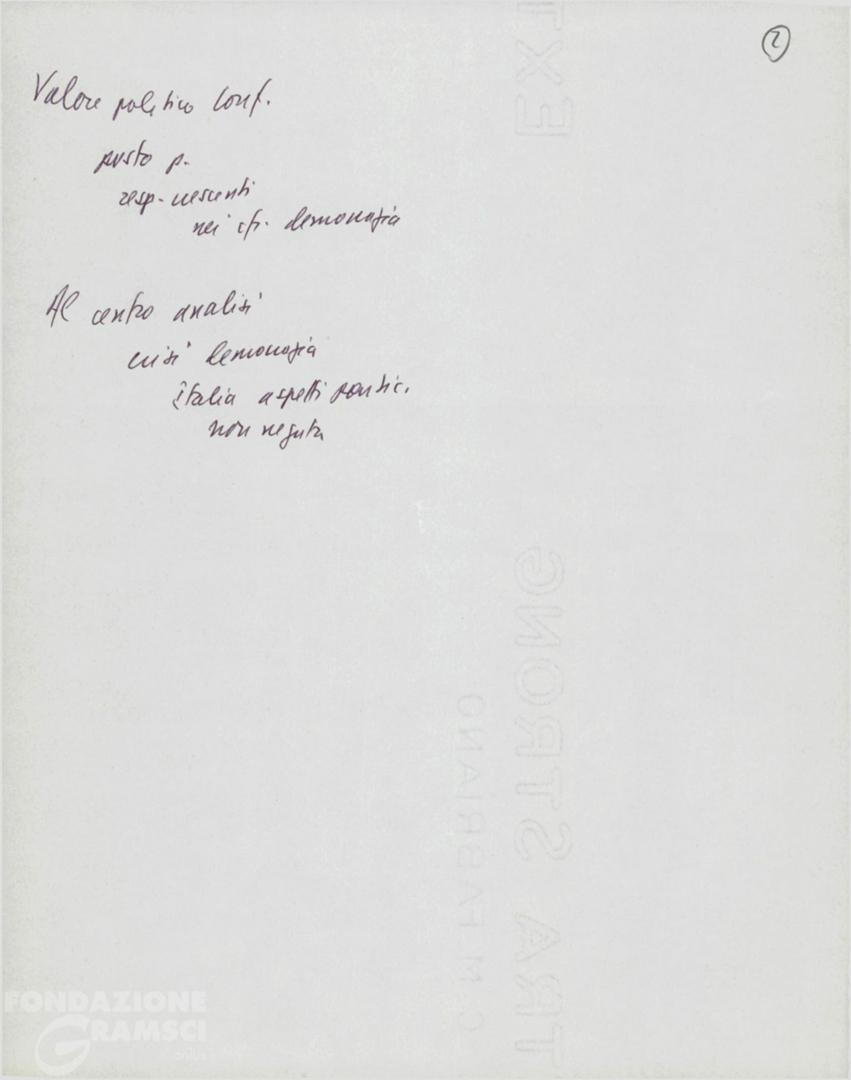 2
Valore politico Conf.
posto p.
resp. crescenti
nei cfr. democrazia
Al centro analisi
crisi democrazia
italia aspetti
non
EXTRA STRONG
C. M. FABRIANO
FONDAZIONE
GRAMSCI
onlus